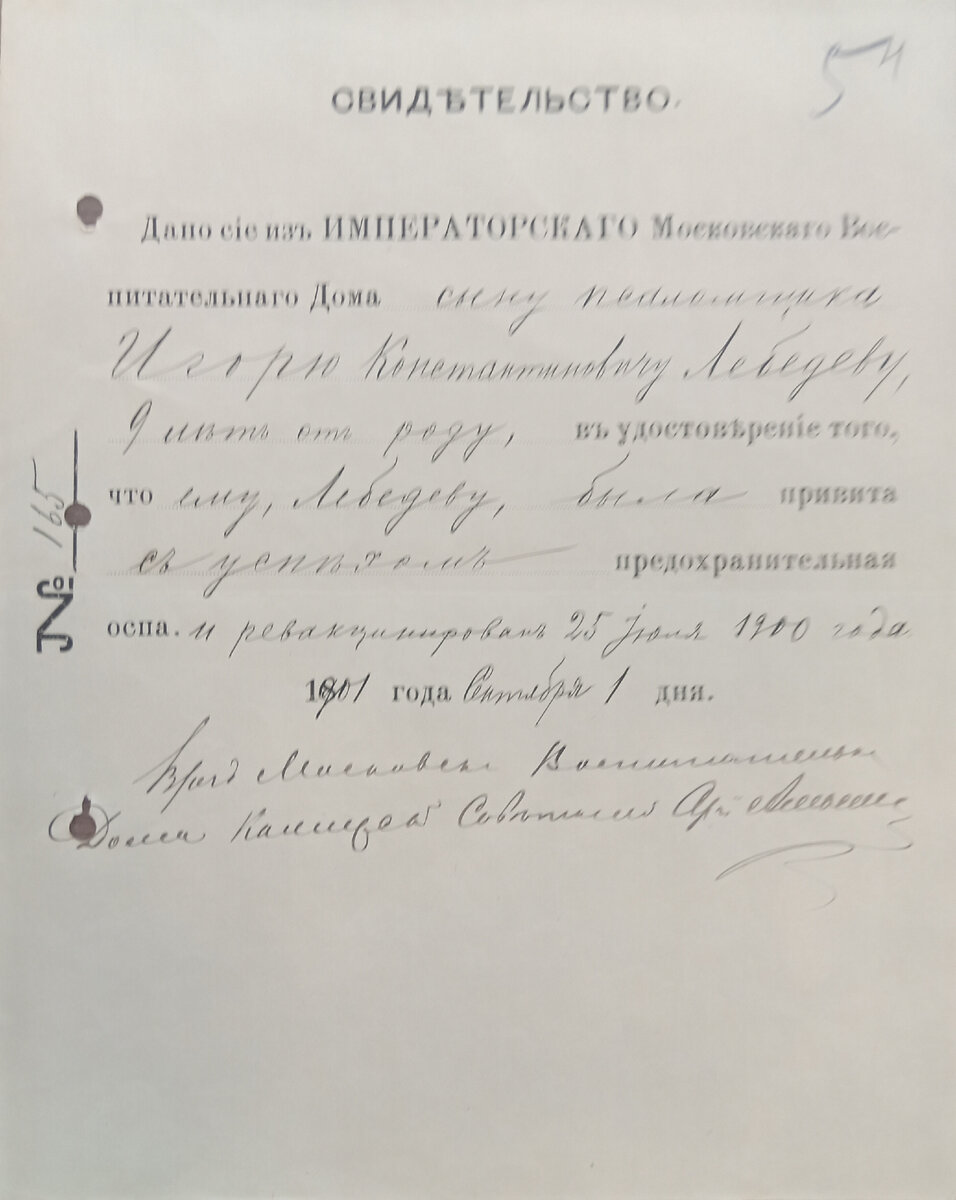 54
СВИДѢТЕЛЬСТВО.
Дано сіе изъ ИМПЕРАТОРСКАГО Московскаго Вос-
питательнаго Дома сыну псаломщика
Игорю Константиновичу Лебедеву,
9 лѣтъ отъ роду, въ удостовѣреніе того,
что ему, Лебедеву, была привита
съ успѣхомъ предохранительная
оспа. и ревакцинированъ 25 Іюля 1900 года
1901 года Сентября 1 дня.
Врачъ Московск. Воспитательн.
Дома Совѣтникъ
№ 165